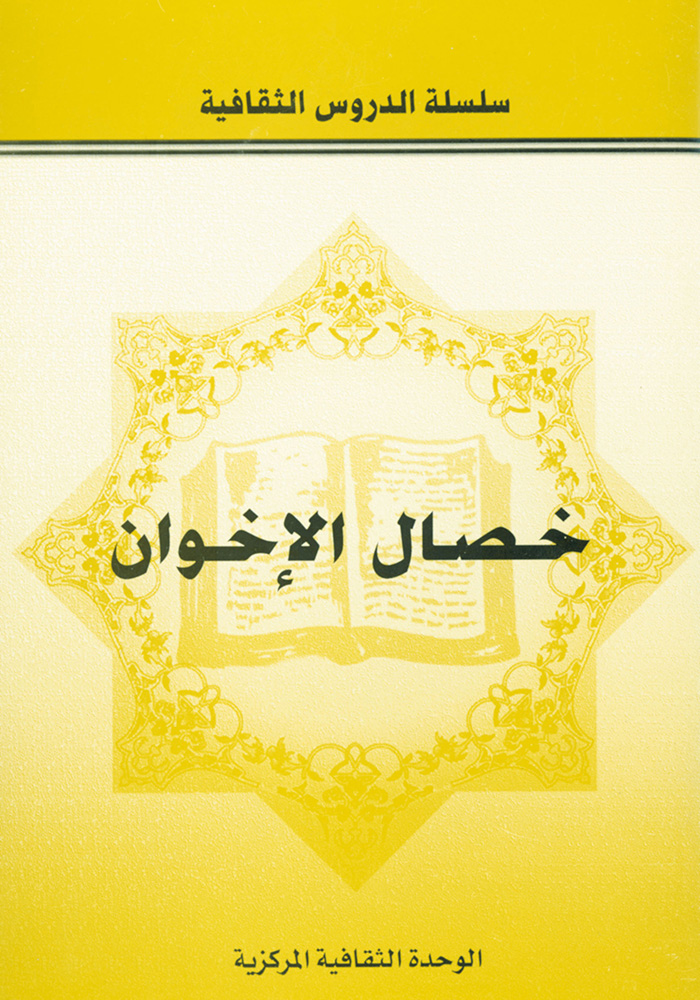 سلسلة الدروس الثقافية
خصال الإخوان
الوحدة الثقافية المركزية